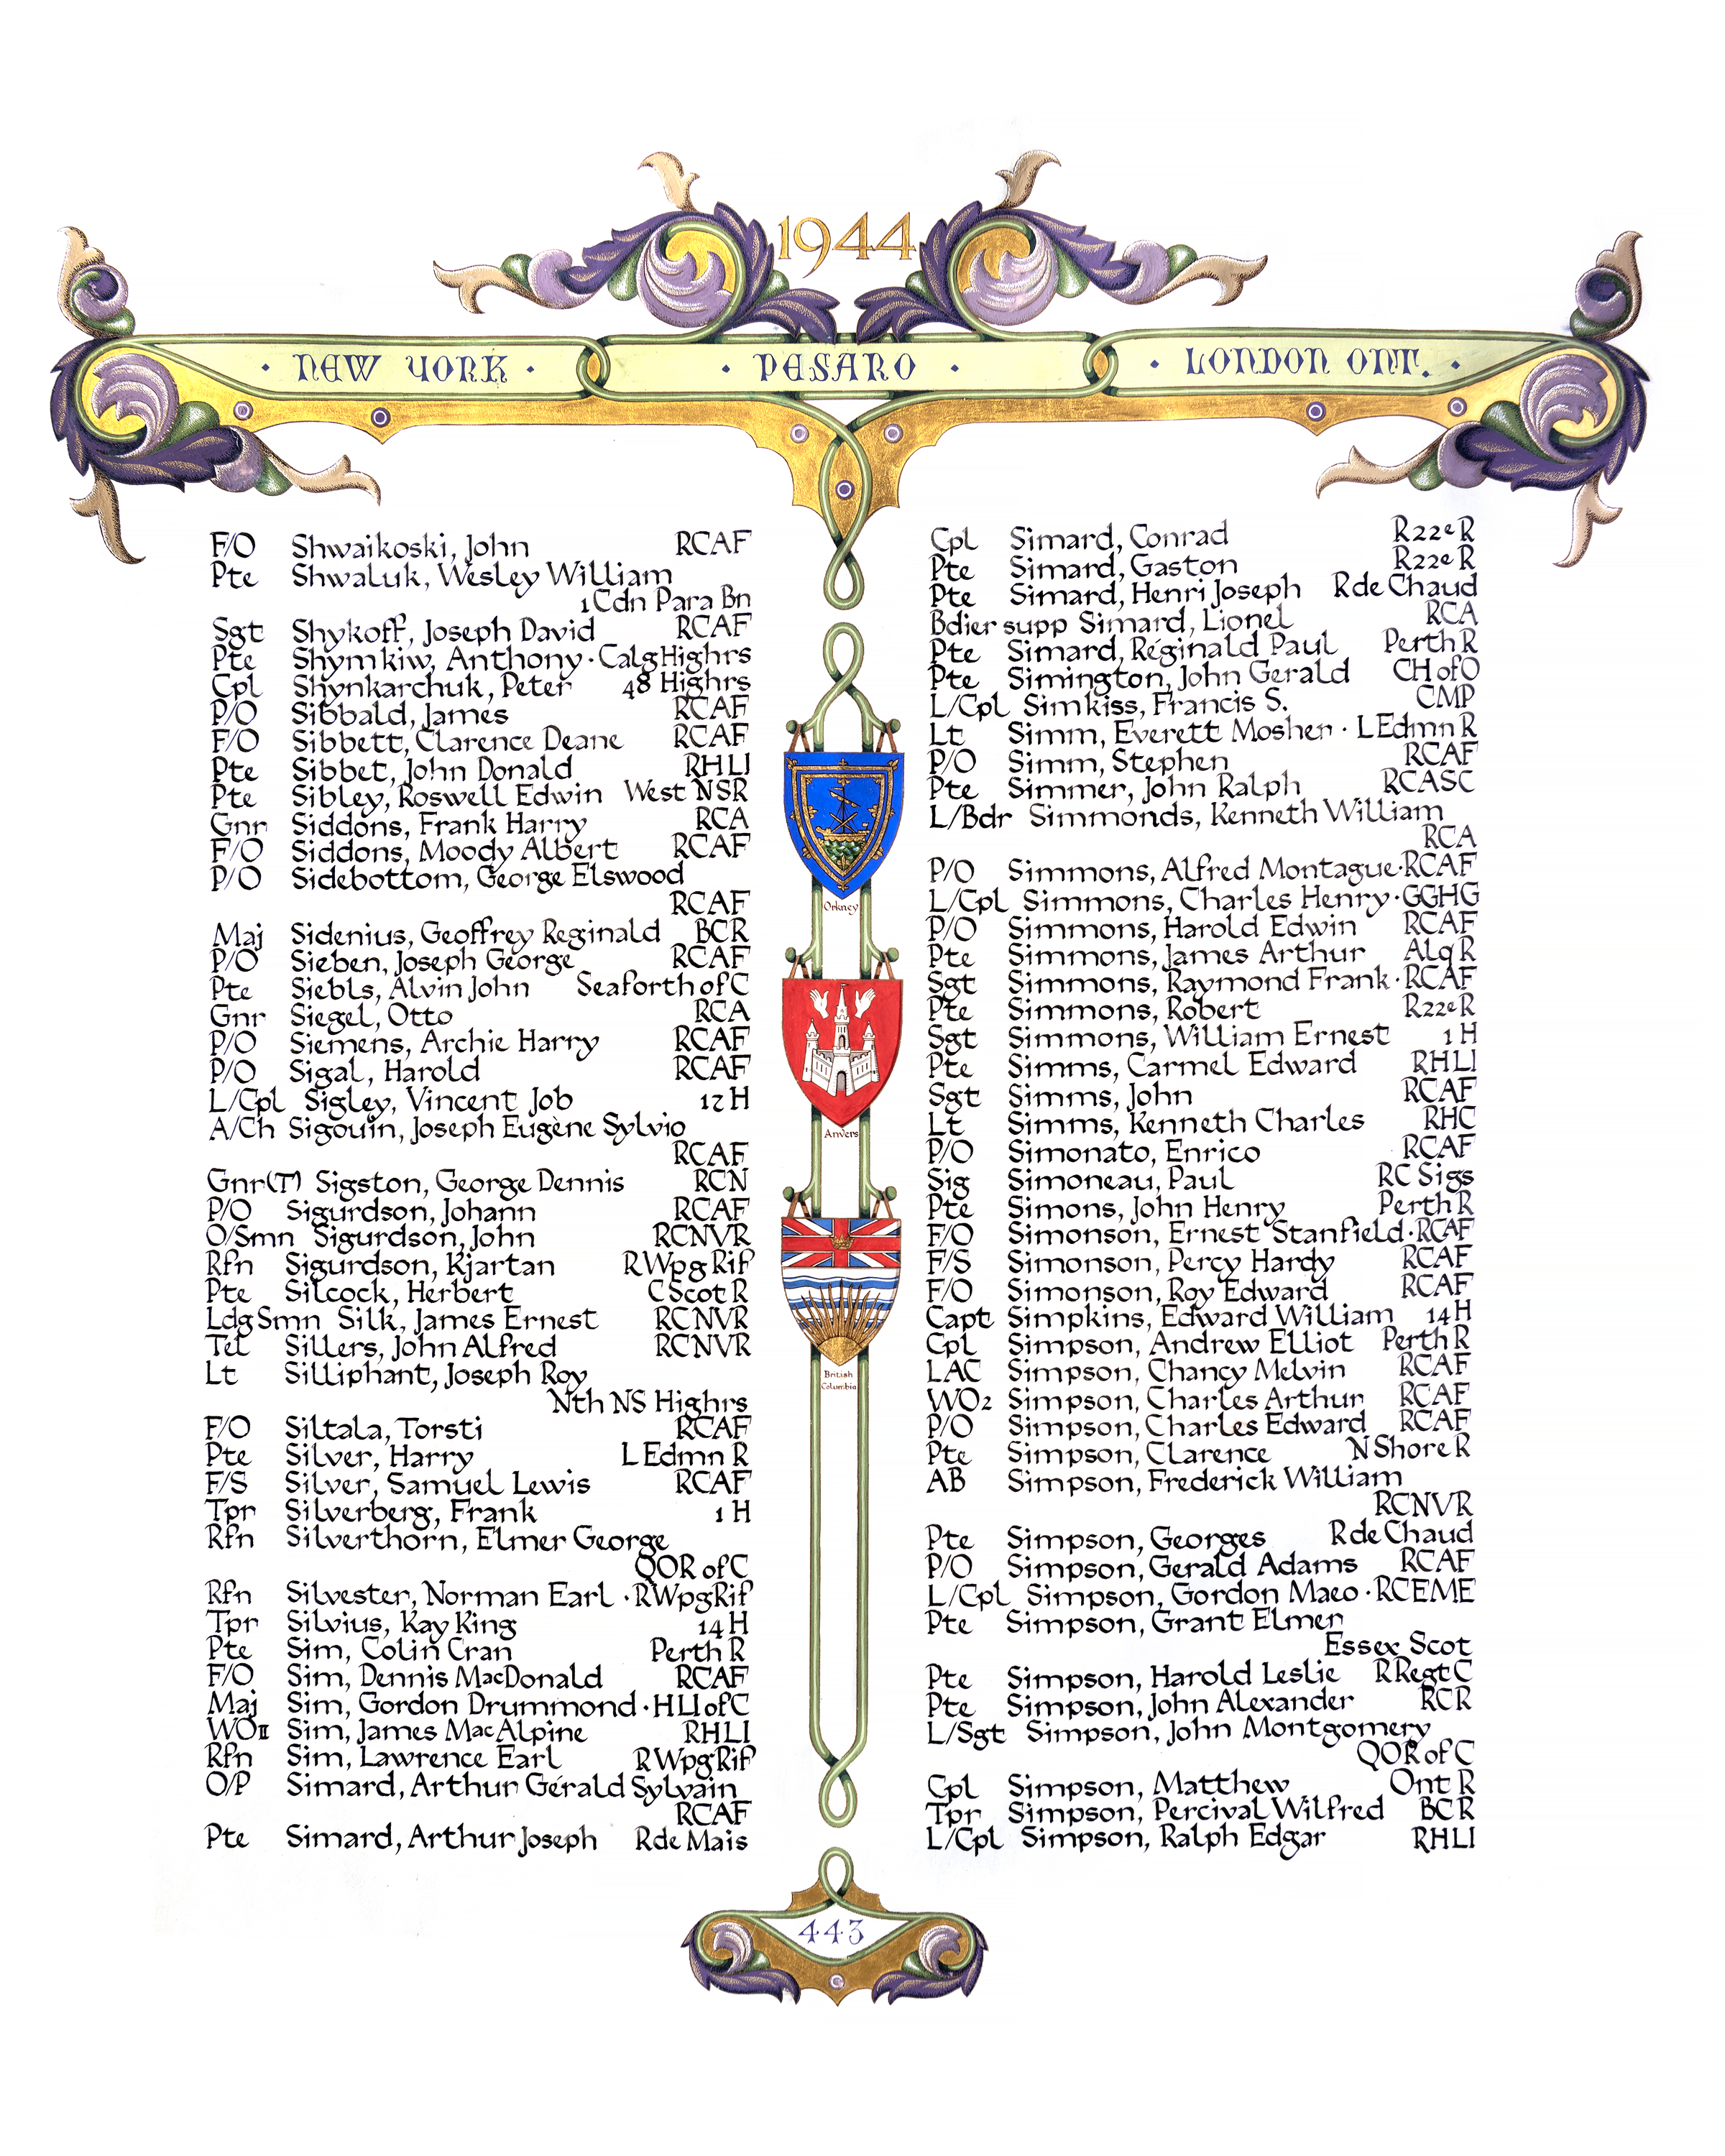 1944
· NEW YORK · · PESARO · · LONDON ONT. ·
F/O Shwaikoski, John RCAF
Pte Shwaluk, Wesley William
1 Cdn Para Bn
Sgt Shykoff, Joseph David RCAF
Pte Shymkiw, Anthony · Calg Highrs
Cpl Shynkarchuk, Peter 48 Highrs
P/O Sibbald, James RCAF
F/O Sibbett, Clarence Deane RCAF
Pte Sibbet, John Donald RHLI
Pte Sibley, Roswell Edwin West NSR
Gnr Siddons, Frank Harry RCA
F/O Siddons, Moody Albert RCAF
P/O Sidebottom, George Elswood
RCAF
Maj Sidenius, Geoffrey Reginald BCR
P/O Sieben, Joseph George RCAF
Pte Siebls, Alvin John Seaforth of C
Gnr Siegel, Otto RCA
P/O Siemens, Archie Harry RCAF
P/O Sigal, Harold RCAF
L/Cpl Sigley, Vincent Job 12 H
A/Ch Sigouin, Joseph Eugène Sylvio
RCAF
Gnr(T) Sigston, George Dennis RCN
P/O Sigurdson, Johann RCAF
O/Smn Sigurdson, John RCNVR
Rfn Sigurdson, Kjartan R Wpg Rif
Pte Silcock, Herbert C Scot R
Ldg Smn Silk, James Ernest RCNVR
Tel Sillers, John Alfred RCNVR
Lt Silliphant, Joseph Roy
Nth NS Highrs
F/O Siltala, Torsti RCAF
Pte Silver, Harry L Edmn R
F/S Silver, Samuel Lewis RCAF
Tpr Silverberg, Frank 1 H
Rfn Silverthorn, Elmer George
QOR of C
Rfn Silvester, Norman Earl · R Wpg Rif
Tpr Silvius, Kay King 14 H
Pte Sim, Colin Cran Perth R
F/O Sim, Dennis MacDonald RCAF
Maj Sim, Gordon Drummond · HLI of C
WOII Sim, James MacAlpine RHLI
Rfn Sim, Lawrence Earl R Wpg Rif
O/P Simard, Arthur Gérald Sylvain
RCAF
Pte Simard, Arthur Joseph R de Mais
Orkney
Anvers
British
Columbia
Cpl Simard, Conrad R22eR
Pte Simard, Gaston R22eR
Pte Simard, Henri Joseph R de Chaud
Bdier supp Simard, Lionel RCA
Pte Simard, Réginald Paul Perth R
Pte Simington, John Gerald CH of O
L/Cpl Simkiss, Francis S. CMP
Lt Simm, Everett Mosher · L Edmn R
P/O Simm, Stephen RCAF
Pte Simmer, John Ralph RCASC
L/Bdr Simmonds, Kenneth William
RCA
P/O Simmons, Alfred Montague · RCAF
L/Cpl Simmons, Charles Henry · GGHG
P/O Simmons, Harold Edwin RCAF
Pte Simmons, James Arthur Alq R
Sgt Simmons, Raymond Frank · RCAF
Pte Simmons, Robert R22eR
Sgt Simmons, William Ernest 1 H
Pte Simms, Carmel Edward RHLI
Sgt Simms, John RCAF
Lt Simms, Kenneth Charles RHC
P/O Simonato, Enrico RCAF
Sig Simoneau, Paul RC Sigs
Pte Simons, John Henry Perth R
F/O Simonson, Ernest Stanfield · RCAF
F/S Simonson, Percy Hardy RCAF
F/O Simonson, Roy Edward RCAF
Capt Simpkins, Edward William 14 H
Cpl Simpson, Andrew Elliot Perth R
LAC Simpson, Chancy Melvin RCAF
WO2 Simpson, Charles Arthur RCAF
P/O Simpson, Charles Edward RCAF
Pte Simpson, Clarence N Shore R
AB Simpson, Frederick William
RCNVR
Pte Simpson, Georges R de Chaud
P/O Simpson, Gerald Adams RCAF
L/Cpl Simpson, Gordon Maeo · RCEME
Pte Simpson, Grant Elmer
Essex Scot
Pte Simpson, Harold Leslie R Regt C
Pte Simpson, John Alexander RCR
L/Sgt Simpson, John Montgomery
QOR of C
Cpl Simpson, Matthew Ont R
Tpr Simpson, Percival Wilfred BCR
L/Cpl Simpson, Ralph Edgar RHLI
443